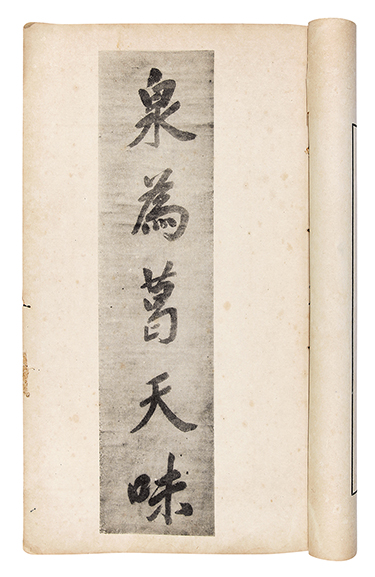 泉為葛天味